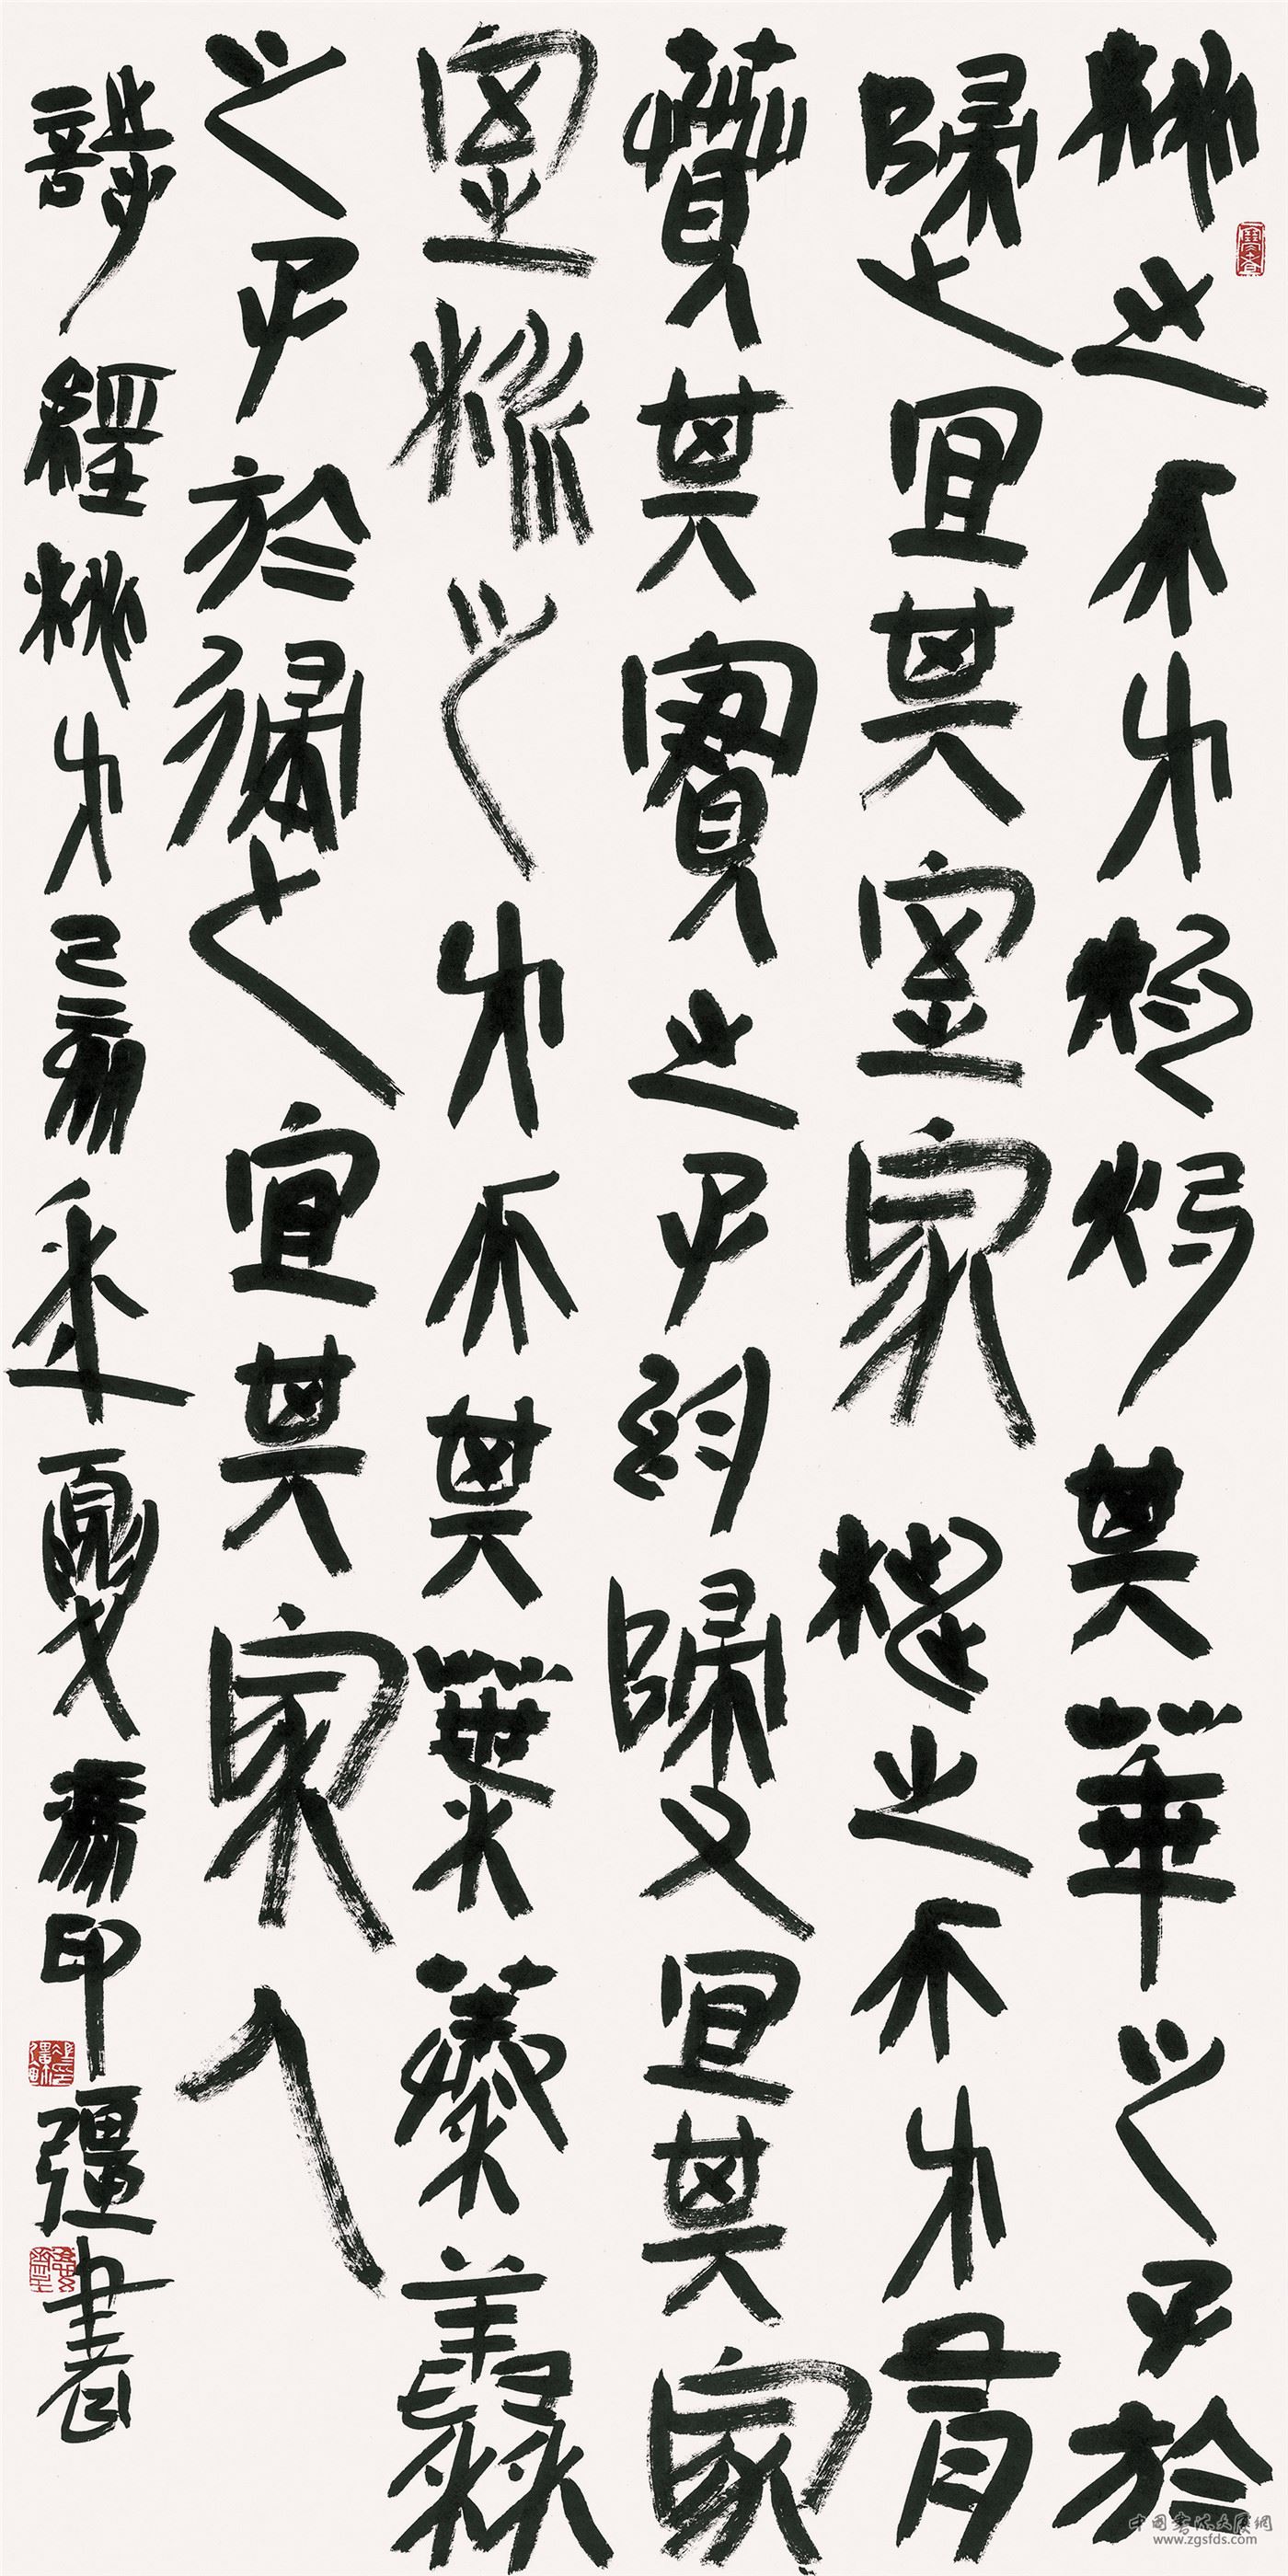 桃之夭夭灼灼其華之子於
歸宜其室家桃之夭夭有
蕡其實之子於歸宜其家
室桃之夭夭其葉蓁蓁
之子於歸宜其家人
詩經桃夭己亥夏印彊書
中国书法大展网
www.zgsfds.com